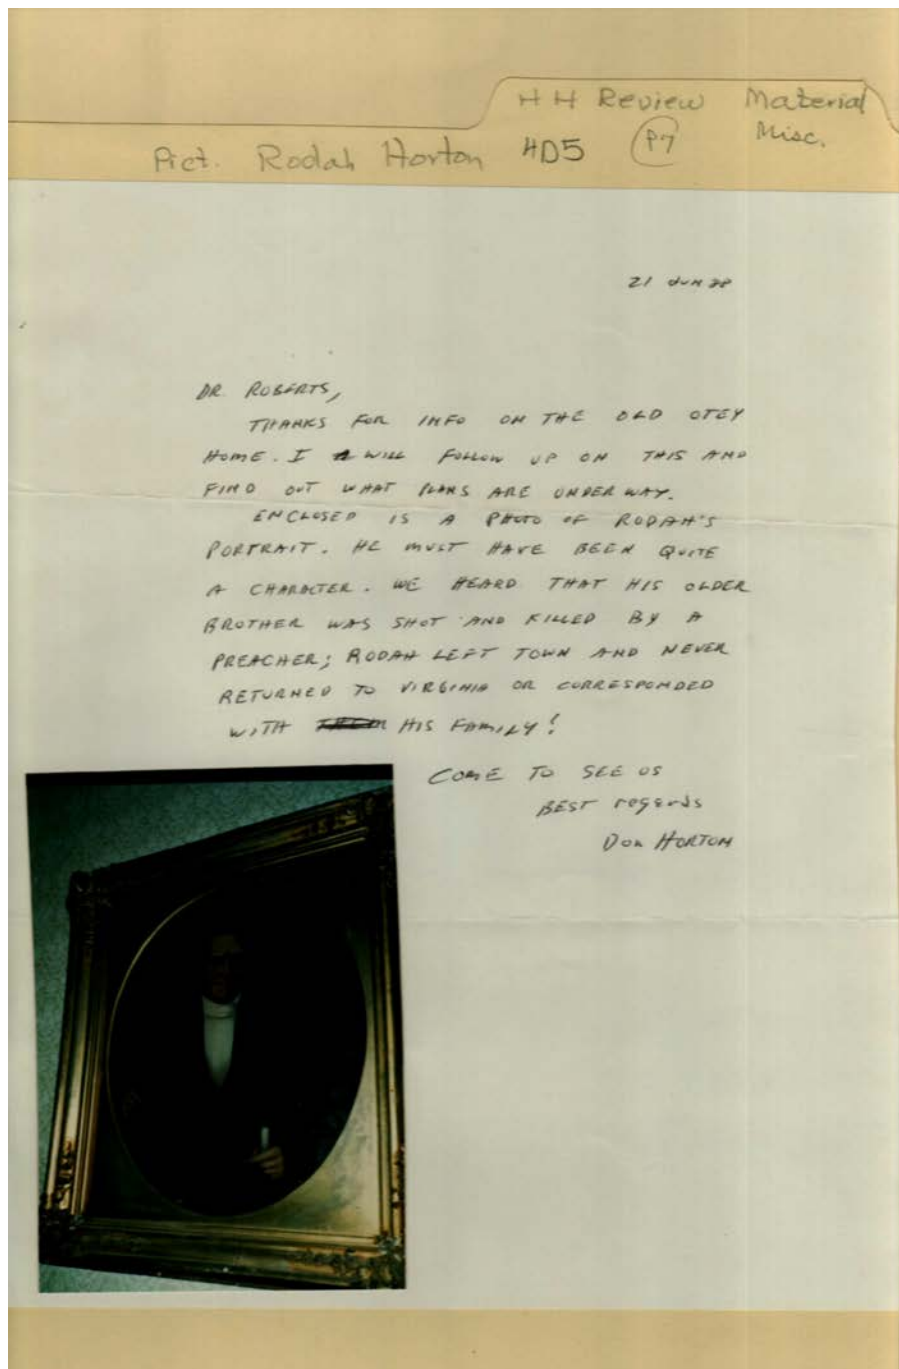 HH Review Material
Misc.
Pict. Rodah Horton 4D5 P7
21 JUN 88
DR. ROBERTS,
THANKS FOR INFO ON THE OLD OTEY
HOME. I WILL FOLLOW UP ON THIS AND
FIND OUT WHAT PLANS ARE UNDER WAY.
ENCLOSED IS A PHOTO OF RODAH'S
PORTRAIT. HE MUST HAVE BEEN QUITE
A CHARACTER. WE HEARD THAT HIS OLDER
BROTHER WAS SHOT AND KILLED BY A
PREACHER; RODAH LEFT TOWN AND NEVER
RETURNED TO VIRGINIA OR CORRESPONDED
WITH THEM HIS FAMILY!
COME TO SEE US
BEST regards
Don HORTON